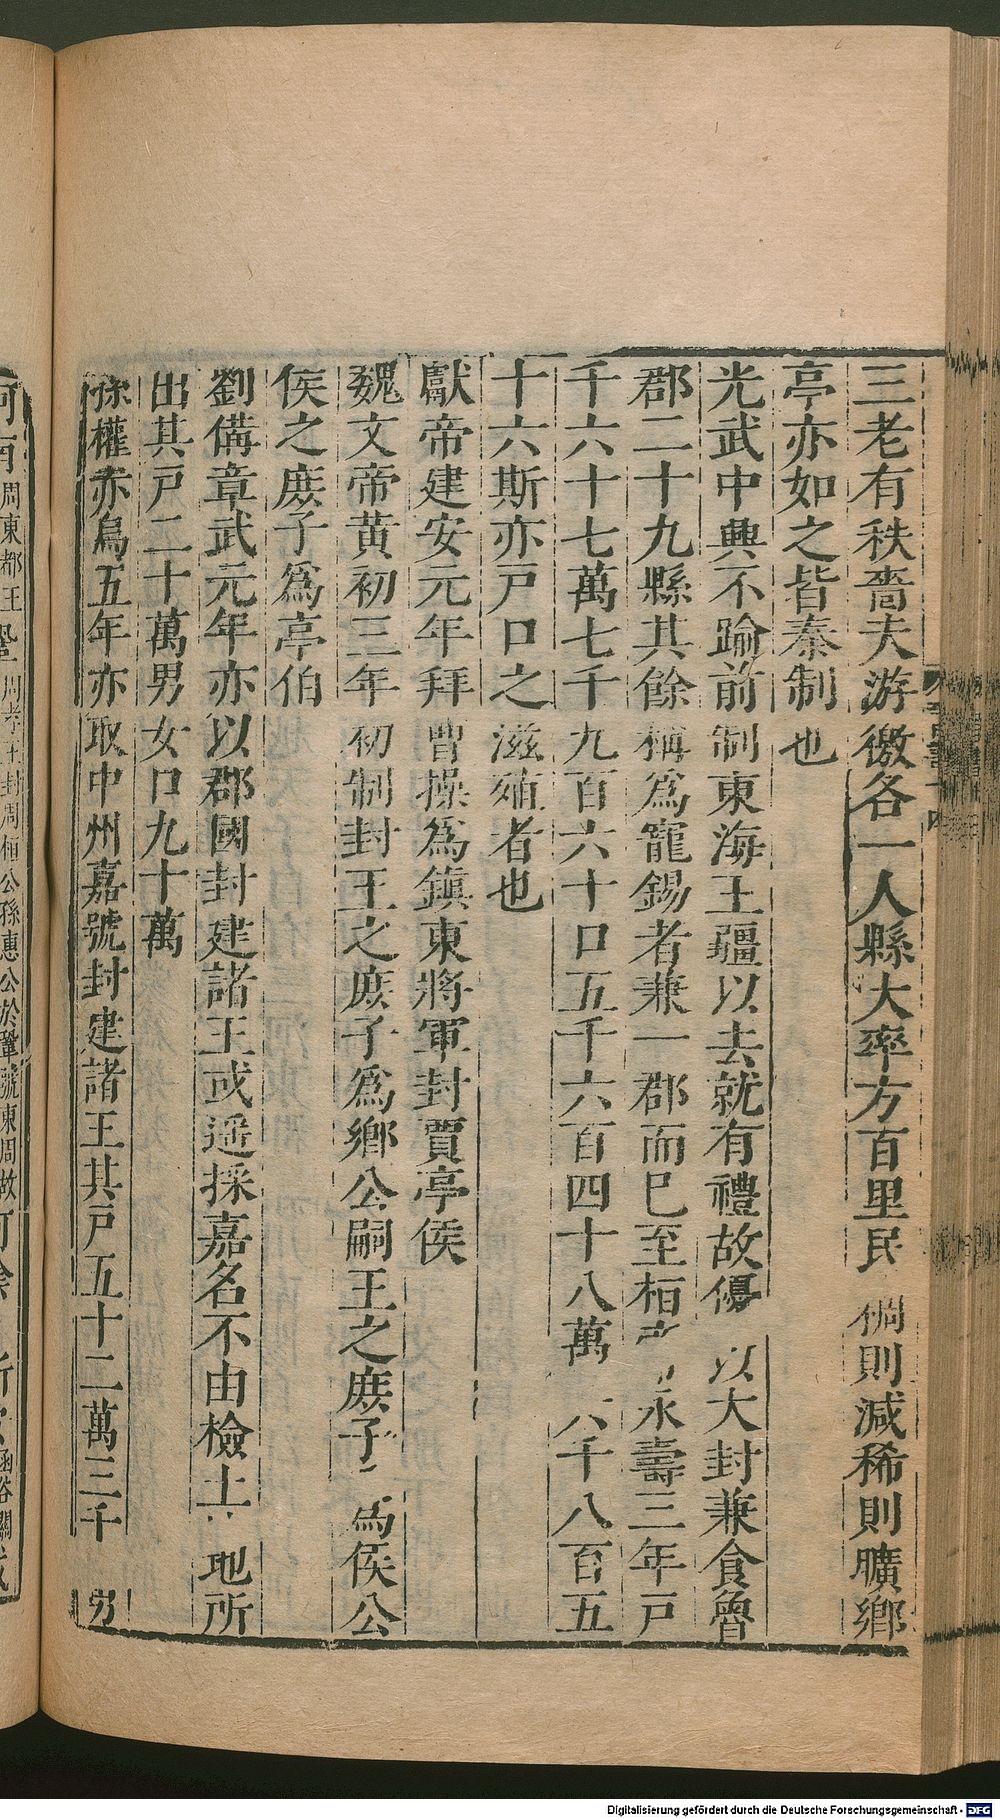 三老有秩嗇夫游徼各一人縣大率方百里民稠則減稀則曠鄉
亭亦如之皆秦制也
光武中興不踰前制東海王疆以去就有禮故優以大封兼食魯
郡二十九縣其餘稱爲寵錫者兼一郡而巳至桓永壽三年戸
千六十七萬七千九百六十口五千六百四十八萬六千八百五
十六斯亦戸口之滋殖者也
獻帝建安元年拜曹操爲鎮東將軍封費亭侯
魏文帝黄初三年初制封王之庶子爲鄉公嗣王之庶子爲侯公
侯之庶子爲亭伯
劉備章武元年亦以郡國封建諸王或遥採嘉名不由檢土地所
出其戸二十萬男女口九十萬
孫權赤烏五年亦取中州嘉號封建諸王其戸五十二萬三千男
河南周東都王鞏周孝王封周桓公孫惠公於鞏號東周故河陰新安函谷關
Digitalisierung gefördert durch die Deutsche Forschungsgemeinschaft - DFG